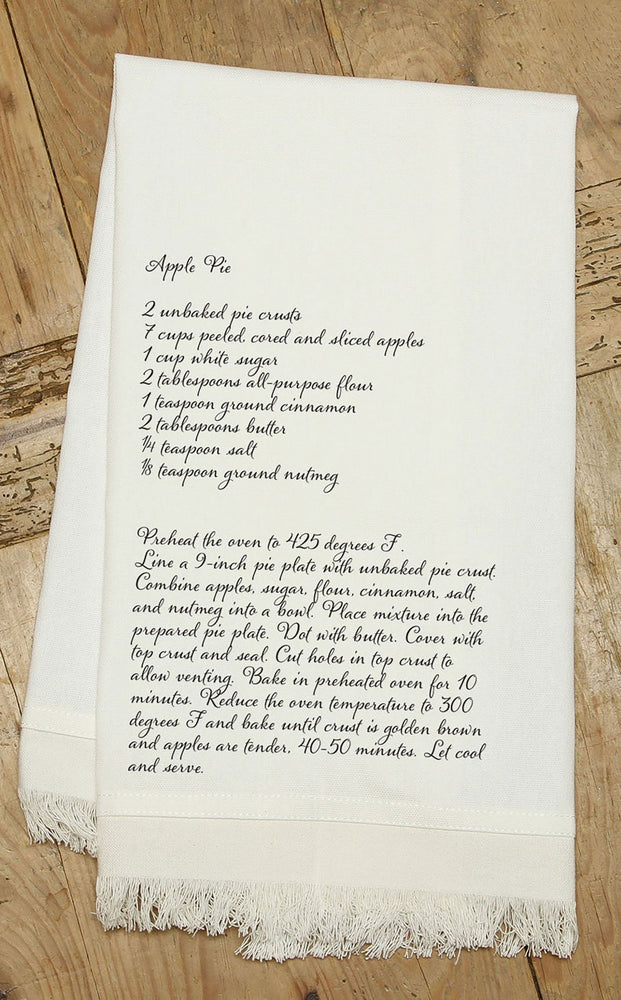 Apple Pie
2 unbaked pie crusts
7 cups peeled, cored and sliced apples
1 cup white sugar
2 tablespoons all-purpose flour
1 teaspoon ground cinnamon
2 tablespoons butter
1/4 teaspoon salt
1/8 teaspoon ground nutmeg
Preheat the oven to 425 degrees F.
Line a 9-inch pie plate with unbaked pie crust.
Combine apples, sugar, flour, cinnamon, salt,
and nutmeg into a bowl. Place mixture into the
prepared pie plate. Dot with butter. Cover with
top crust and seal. Cut holes in top crust to
allow venting. Bake in preheated oven for 10
minutes. Reduce the oven temperature to 300
degrees F and bake until crust is golden brown
and apples are tender, 40-50 minutes. Let cool
and serve.